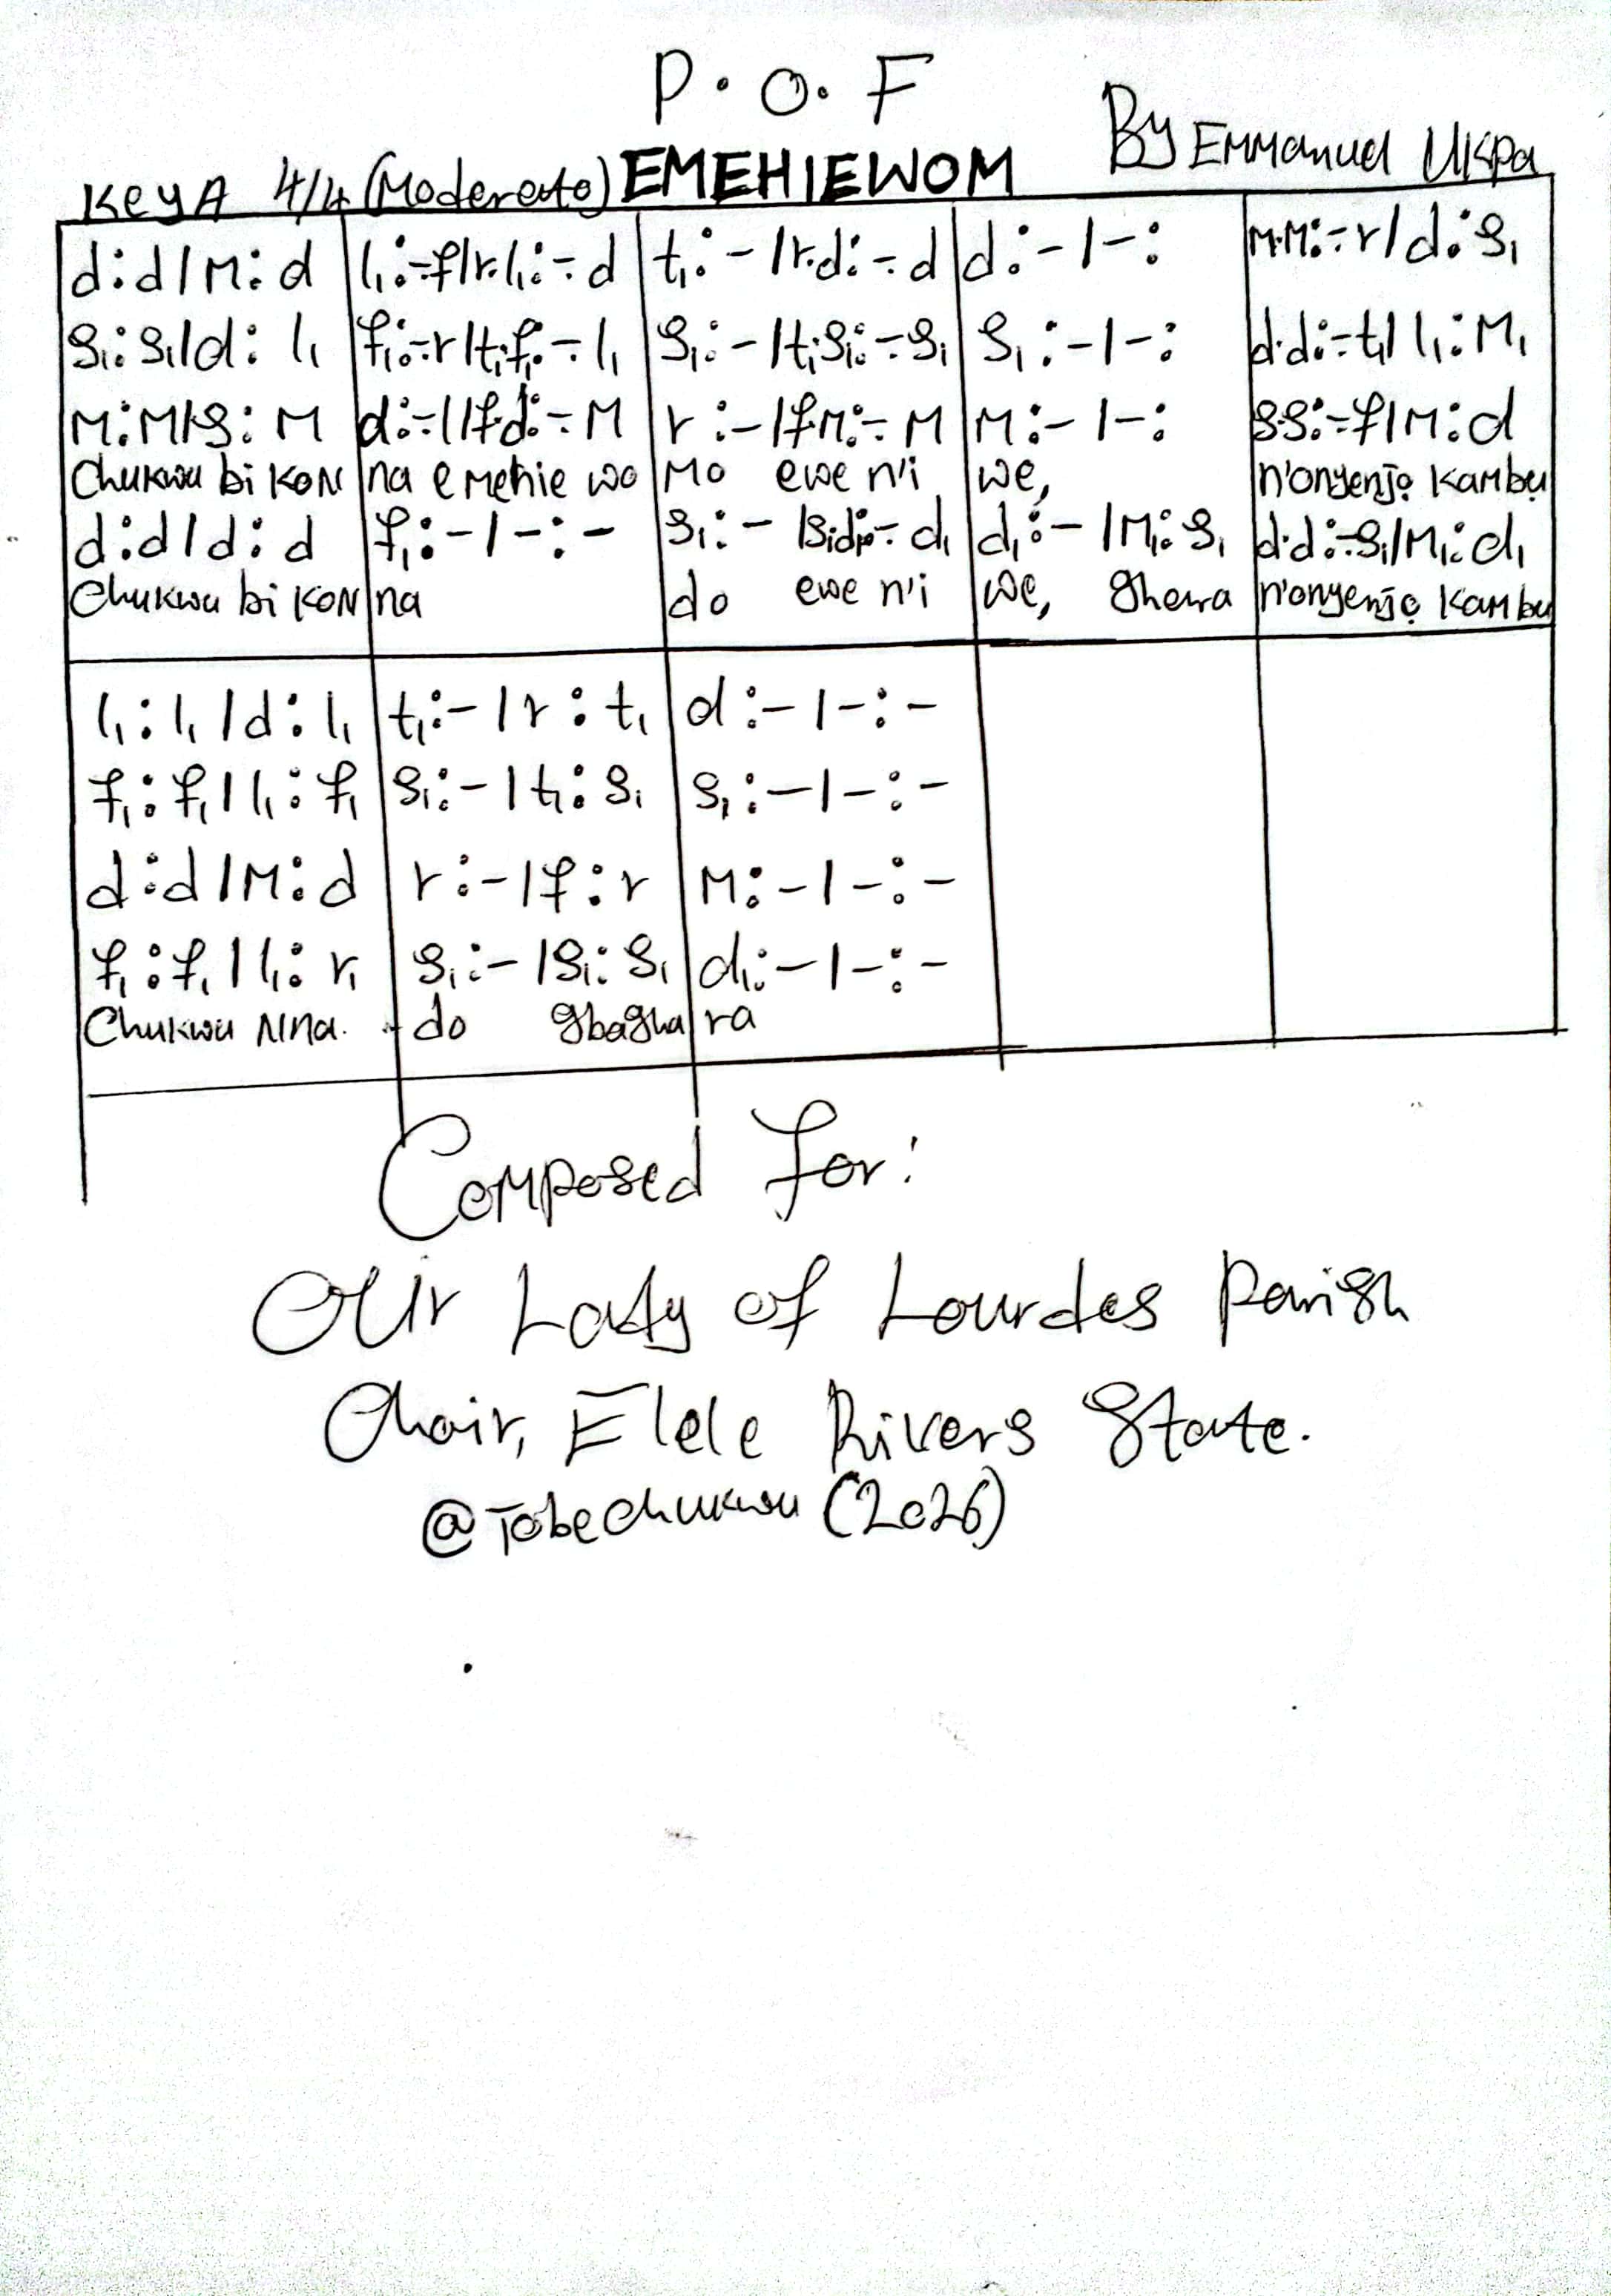 P.O.F
By Emmanuel Ukpa
Key A 4/4 (Moderato) EMEHIEWOM
d:d/m:d | l₁:-.f/r.l₁:-.d | t₁:-/r.d:-.d | d:-/-: | m.m:-.r/d:s₁
s₁:s₁/d:l₁ | f₁:-.r/t₁.f₁:-.l₁ | s₁:-/t₁.s₁:-.s₁ | s₁:-/-: | d.d:-.t₁/l₁:m₁
m:m/s:m | d:-.l/f.d:-.m | r:-/f.m:-.m | m:-/-: | s.s:-.f/m:d
Chukwu bi kon | na emehie wo | mo ewe n'i | we, | n'onyenjọ kambụ
d:d/d:d | f₁:-/-:- | s₁:-/s₁.d₁:-.d₁ | d₁:-/m₁:s₁ | d.d:-.s₁/m₁:d₁
Chukwu bi kon | na | do ewe n'i | we, ghara | n'onyenjọ kambu
l₁:l₁/d:l₁ | t₁:-/r:t₁ | d:-/-:-
f₁:f₁/l₁:f₁ | s₁:-/t₁:s₁ | s₁:-/-:-
d:d/m:d | r:-/f:r | m:-/-:-
f₁:f₁/l₁:r₁ | s₁:-/s₁:s₁ | d₁:-/-:-
Chukwu Nna. | do gbagha | ra
Composed for:
Our Lady of Lourdes Parish
Choir, Elele Rivers State.
@Tobechukwu (2026)